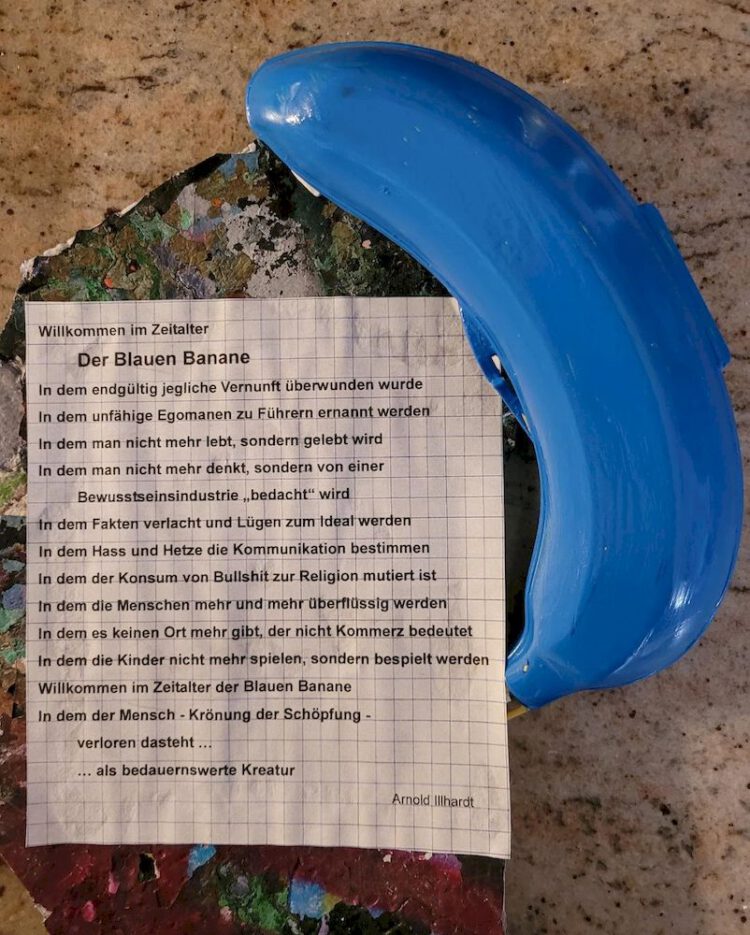 Willkommen im Zeitalter
Der Blauen Banane
In dem endgültig jegliche Vernunft überwunden wurde
In dem unfähige Egomanen zu Führern ernannt werden
In dem man nicht mehr lebt, sondern gelebt wird
In dem man nicht mehr denkt, sondern von einer
Bewusstseinsindustrie „bedacht“ wird
In dem Fakten verlacht und Lügen zum Ideal werden
In dem Hass und Hetze die Kommunikation bestimmen
In dem der Konsum von Bullshit zur Religion mutiert ist
In dem die Menschen mehr und mehr überflüssig werden
In dem es keinen Ort mehr gibt, der nicht Kommerz bedeutet
In dem die Kinder nicht mehr spielen, sondern bespielt werden
Willkommen im Zeitalter der Blauen Banane
In dem der Mensch - Krönung der Schöpfung -
verloren dasteht ...
... als bedauernswerte Kreatur
Arnold Illhardt